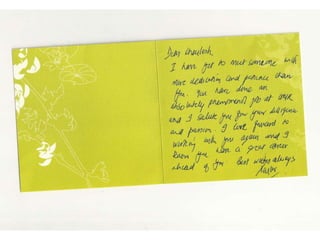 Dear
I have yet to meet someone with
more dedication and patience than
you. You have done an
absolutely phenomenal job at work
and I salute you for your diligence
and passion. I look forward to
working with you again and I
know you have a great career
ahead of you. Best wishes always